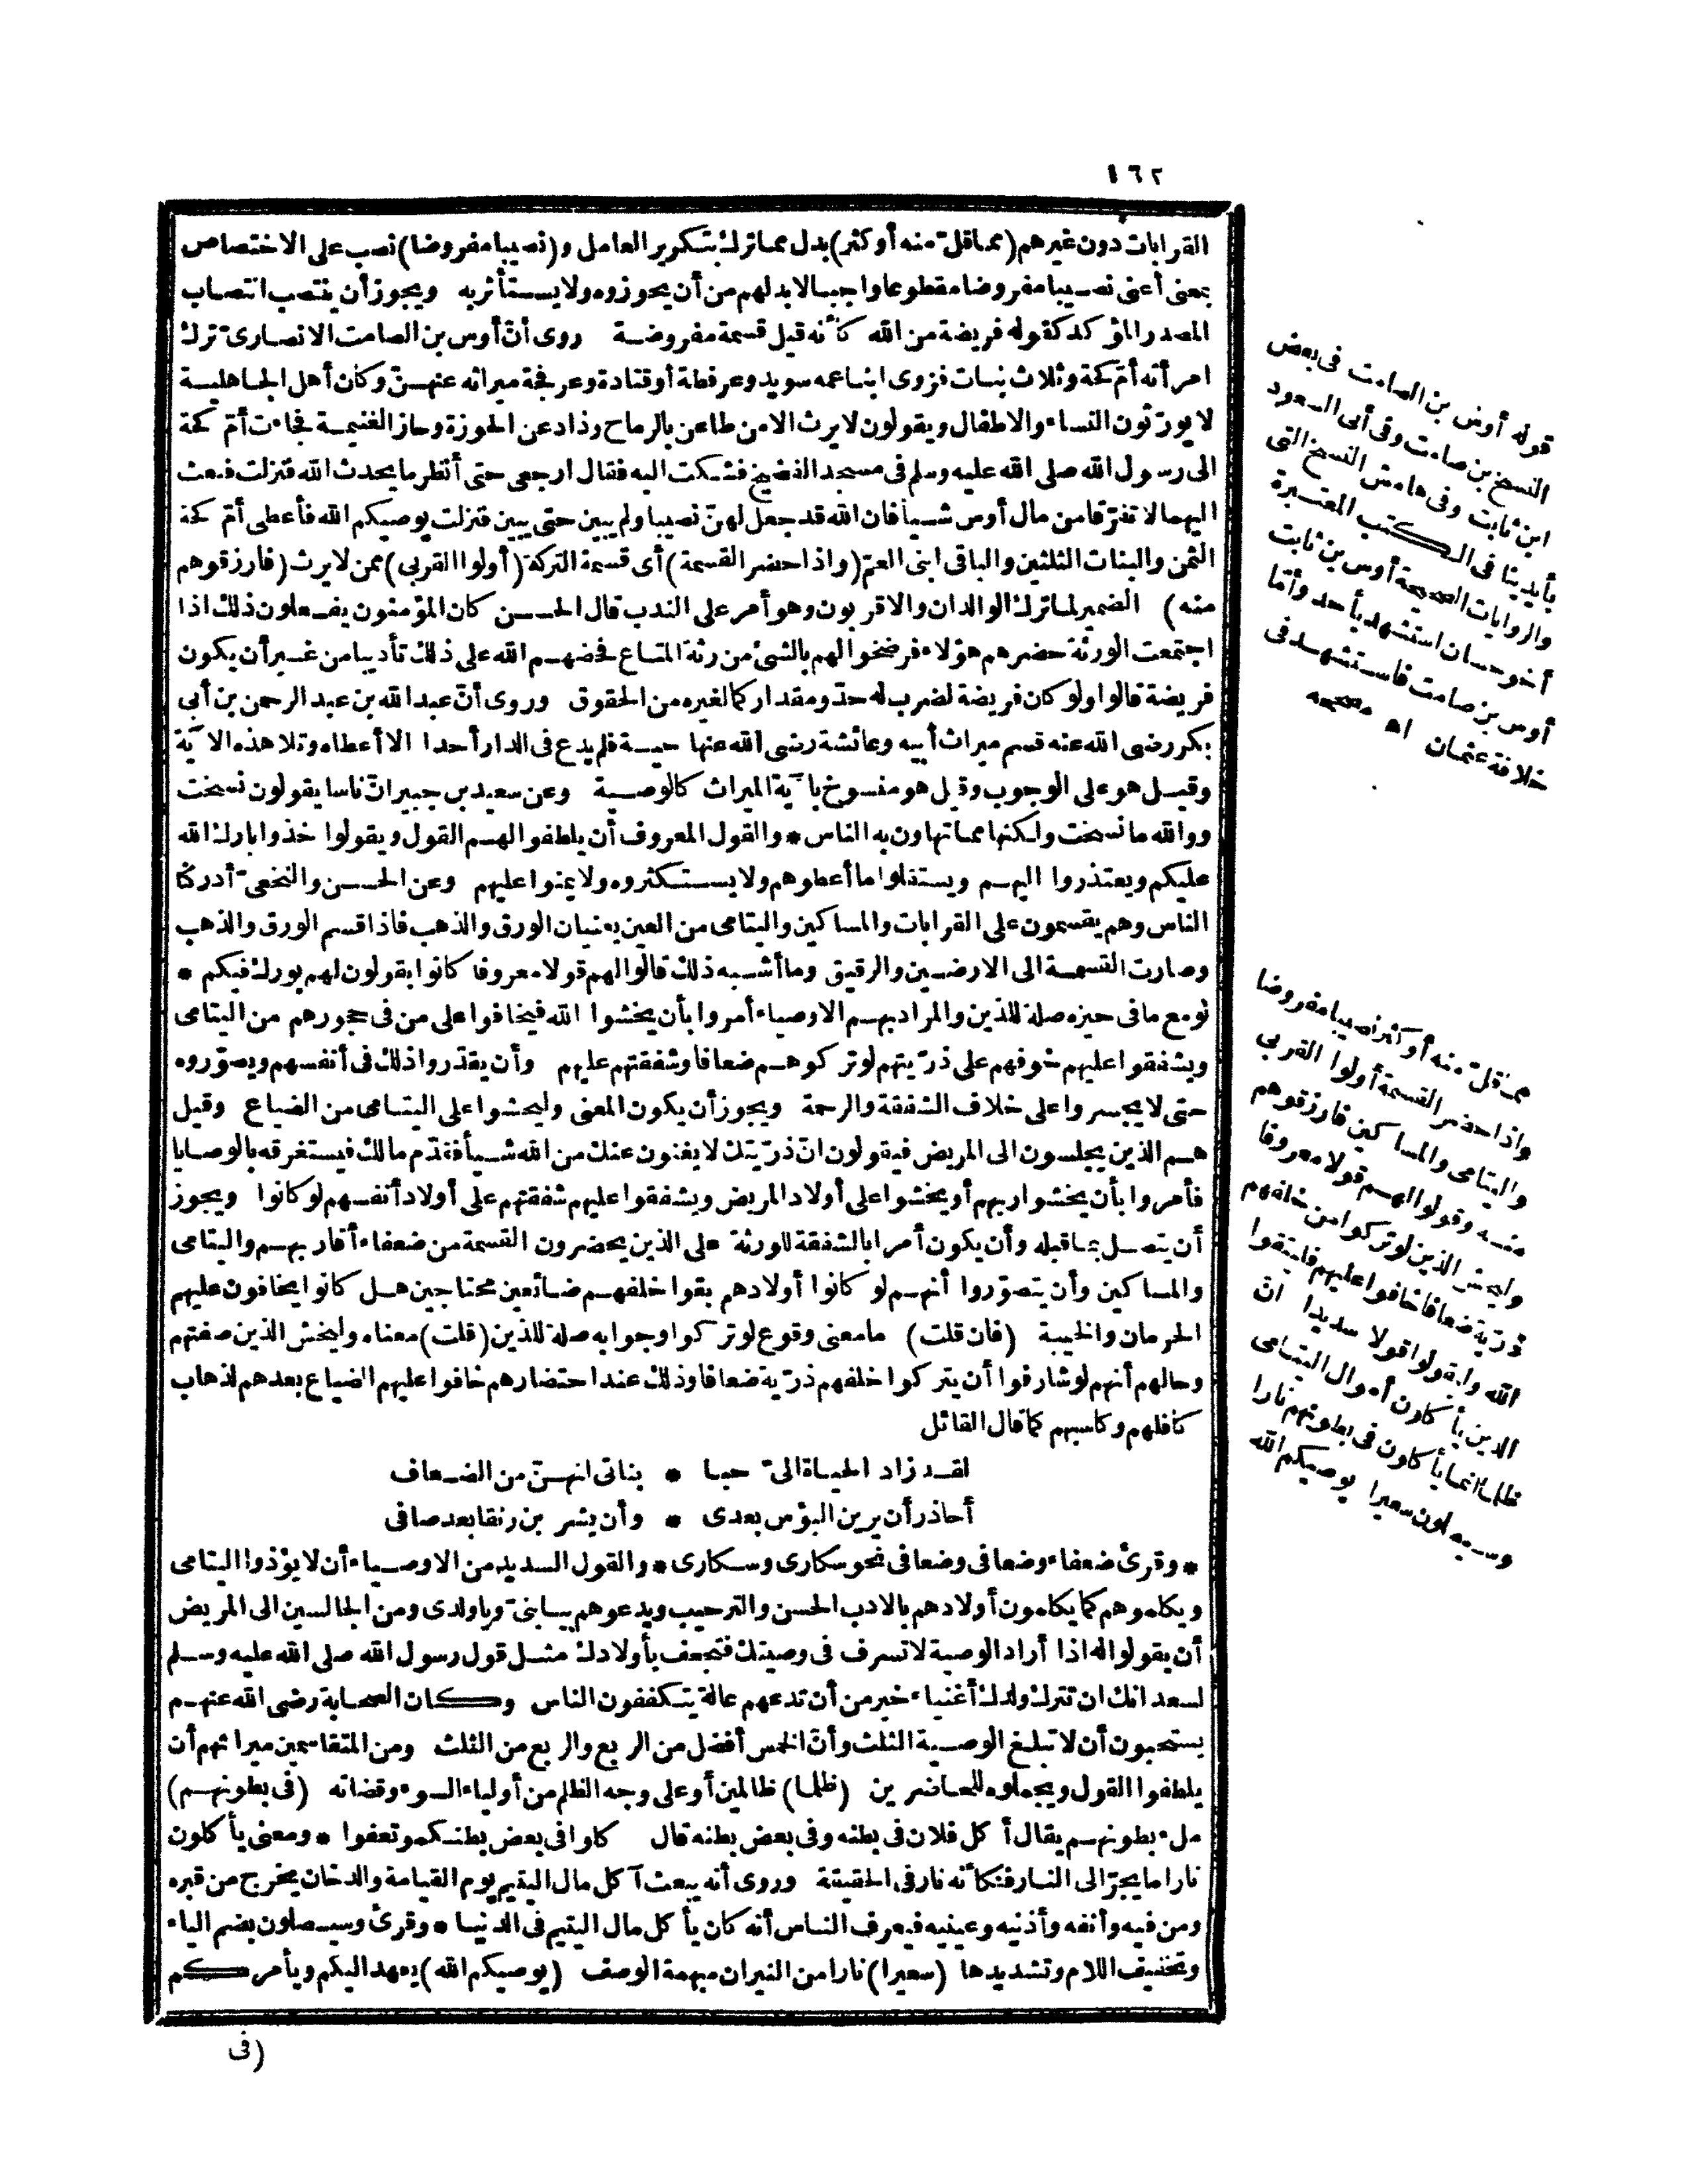 ١٦٢
القرابات دون غيرهم (مما قلّ منه أو كثر) بدل مما ترك بتكرير العامل و(نصيبا مفروضا) نصب على الاختصاص
بمعنى أعنى نصيبا مفروضا مقطوعا واجبا لا بد لهم من أن يحوزوه ولا يستأثر به ويجوز أن ينتصب انتصاب
المصدر المؤكد كقوله فريضة من الله كأنه قيل قسمة مفروضة روى أنّ أوس بن الصامت الانصارىّ ترك
امرأته أمّ كحة وثلاث بنات فزوى ابنا عمه سويد وعرفطة أو قتادة وعرفجة ميراثه عنهنّ وكان أهل الجاهلية
لا يورّثون النساء والاطفال ويقولون لا يرث الا من طاعن بالرماح وذاد عن الحوزة وحاز الغنيمة فجاءت أمّ كحة
الى رسول الله صلى الله عليه وسلم فى مسجد الفضيخ فشكت اليه فقال ارجعى حتى أنظر ما يحدث الله فنزلت فبعث
اليهما لا تفرّقا من مال أوس شيأ فان الله قد جعل لهنّ نصيبا ولم يبين حتى يبين فنزلت يوصيكم الله فأعطى أمّ كحة
الثمن والبنات الثلثين والباقى ابنى العمّ (واذا حضر القسمة) أى قسمة التركة (أولوا القربى) ممن لا يرث (فارزقوهم
منه) الضمير لما ترك الوالدان والاقربون وهو أمر على الندب قال الحسن كان المؤمنون يفعلون ذلك اذا
اجتمعت الورثة حضرهم هؤلاء فرضخوا لهم بالشئ من رثة المتاع فحضهم الله على ذلك تأديبا من غير أن يكون
فريضة قالوا ولو كان فريضة لضرب له حدّ ومقدار كما لغيره من الحقوق وروى أنّ عبد الله بن عبد الرحمن بن أبى
بكر رضى الله عنه قسم ميراث أبيه وعائشة رضى الله عنها حية فلم يدع فى الدار أحدا الا أعطاه وتلا هذه الآية
وقيل هو على الوجوب وقيل هو منسوخ بآية الميراث كالوصية وعن سعيد بن جبير انّ ناسا يقولون نسخت
ووالله ما نسخت ولكنها مما تهاون به الناس * والقول المعروف أن يلطفوا لهم القول ويقولوا خذوا بارك الله
عليكم ويعتذروا اليهم ويستقلوا ما أعطوهم ولا يستكثروه ولا يمنوا عليهم وعن الحسن والنخعىّ أدركنا
الناس وهم يقسمون على القرابات والمساكين واليتامى من العين يعنيان الورق والذهب فاذا قسم الورق والذهب
وصارت القسمة الى الارضين والرقيق وما أشبه ذلك قالوا لهم قولا معروفا كانوا يقولون لهم بورك فيكم *
لو مع ما فى حيزه صلة للذين والمراد بهم الاوصياء أمروا بأن يخشوا الله فيخافوا على من فى حجورهم من اليتامى
ويشفقوا عليهم خوفهم على ذرّيتهم لو تركوهم ضعافا وشفقتهم عليهم وأن يقدّروا ذلك فى أنفسهم ويصوّروه
حتى لا يجسروا على خلاف الشفقة والرحمة ويجوز أن يكون المعنى وليخشوا على اليتامى من الضياع وقيل
هم الذين يجلسون الى المريض فيقولون انّ ذرّيتك لا يغنون عنك من الله شيأ فقدّم مالك فيستغرقه بالوصايا
فأمروا بأن يخشوا ربهم أو يخشوا على أولاد المريض ويشفقوا عليهم شفقتهم على أولاد أنفسهم لو كانوا ويجوز
أن يتصل بما قبله وأن يكون أمرا بالشفقة للورثة على الذين يحضرون القسمة من ضعفاء أقاربهم واليتامى
والمساكين وأن يتصوّروا أنهم لو كانوا أولادهم بقوا خلفهم ضائعين محتاجين هل كانوا يخافون عليهم
الحرمان والخيبة (فان قلت) ما معنى وقوع لو تركوا وجوابه صلة للذين (قلت) معناه وليخش الذين صفتهم
وحالهم أنهم لو شارفوا أن يتركوا خلفهم ذرّية ضعافا وذلك عند احتضارهم خافوا عليهم الضياع بعدهم لذهاب
كافلهم وكاسبهم كما قال القائل
لقد زاد الحياة الىّ حبا * بناتى انهنّ من الضعاف
أحاذر أن يرين البؤس بعدى * وأن يشربن رنقا بعد صافى
* وقرئ ضعفاء وضعافى وضعافى نحو سكارى وسكارى * والقول السديد من الاوصياء أن لا يؤذوا اليتامى
ويكلموهم كما يكلمون أولادهم بالادب الحسن والترحيب ويدعوهم بيابنىّ وياولدى ومن الجالسين الى المريض
أن يقولوا له اذا أراد الوصية لا تسرف فى وصيتك فتجحف بأولادك مثل قول رسول الله صلى الله عليه وسلم
لسعد انك ان تترك ولدك أغنياء خير من أن تدعهم عالة يتكففون الناس وكان الصحابة رضى الله عنهم
يستحبون أن لا تبلغ الوصية الثلث وأنّ الخمس أفضل من الربع والربع من الثلث ومن المتقاسمين ميراثهم أن
يلطفوا القول ويجملوه للحاضرين (ظلما) ظالمين أو على وجه الظلم من أولياء السوء وقضاته (فى بطونهم)
ملء بطونهم يقال أكل فلان فى بطنه وفى بعض بطنه قال كلوا فى بعض بطنكمو تعفوا * ومعنى يأكلون
نارا ما يجرّ الى النار فكأنه نار فى الحقيقة وروى أنه يبعث آكل مال اليتيم يوم القيامة والدخان يخرج من قبره
ومن فيه وأنفه وأذنيه وعينيه فيعرف الناس أنه كان يأكل مال اليتيم فى الدنيا * وقرئ وسيصلون بضم الياء
وتخفيف اللام وتشديدها (سعيرا) نارا من النيران مبهمة الوصف (يوصيكم الله) يعهد اليكم ويأمركم
(فى
قوله أوس بن الصامت فى بعض
النسخ بن صامت وفى أبى السعود
ابن ثابت وفى هامش النسخ التى
بأيدينا فى الكتب المعتبرة
والروايات الصحيحة أوس بن ثابت
أخو حسان استشهد بأحد وأمّا
أوس بن صامت فاستشهد فى
خلافة عثمان اه مصححه
مما قلّ منه أو كثر نصيبا مفروضا
واذا حضر القسمة أولوا القربى
واليتامى والمساكين فارزقوهم
منه وقولوا لهم قولا معروفا
وليخش الذين لو تركوا من خلفهم
ذرّية ضعافا خافوا عليهم فليتقوا
الله وليقولوا قولا سديدا انّ
الذين يأكلون أموال اليتامى
ظلما انما يأكلون فى بطونهم نارا
وسيصلون سعيرا يوصيكم الله